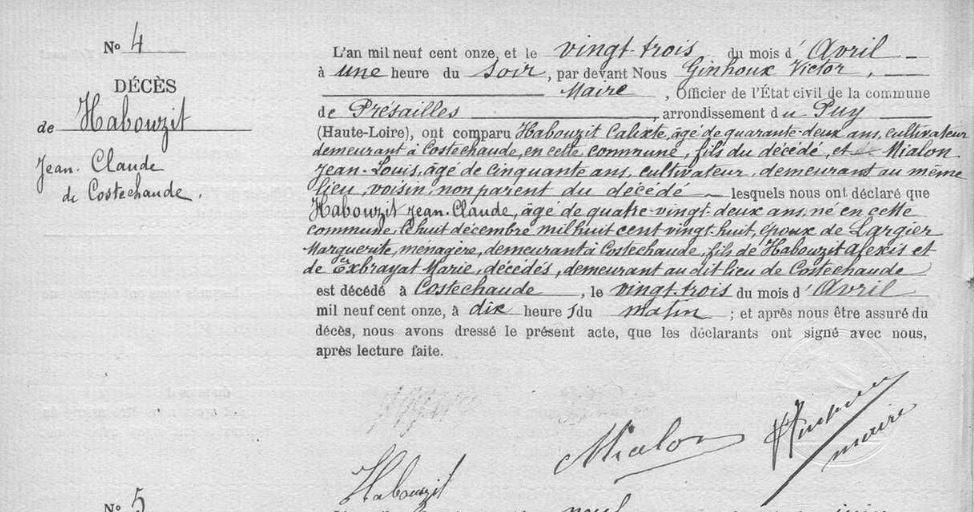 No 4
DÉCÈS
de Habouzit
Jean-Claude
de Costechaude.
L'an mil neuf cent onze, et le vingt-trois du mois d'Avril
à une heure du soir, par devant Nous Ginhoux Victor,
Maire, Officier de l'État civil de la commune
de Présailles, arrondissement du Puy
(Haute-Loire), ont comparu Habouzit Calixte, âgé de quarante-deux ans, cultivateur
demeurant à Costechaude, en cette commune, fils du décédé, et Mialon
Jean-Louis, âgé de cinquante ans, cultivateur, demeurant au même
lieu, voisin, non parent du décédé lesquels nous ont déclaré que
Habouzit Jean-Claude, âgé de quatre-vingt-deux ans, né en cette
commune, le huit décembre mil huit cent vingt-huit, époux de Largier
Marguerite, ménagère, demeurant à Costechaude, fils de Habouzit Alexis et
de Exbrayat Marie, décédés, demeurant au dit lieu de Costechaude
est décédé à Costechaude, le vingt-trois du mois d'Avril
mil neuf cent onze, à dix heures du matin ; et après nous être assuré du
décès, nous avons dressé le présent acte, que les déclarants ont signé avec nous,
après lecture faite.
Habouzit
Mialon
maire
No 5